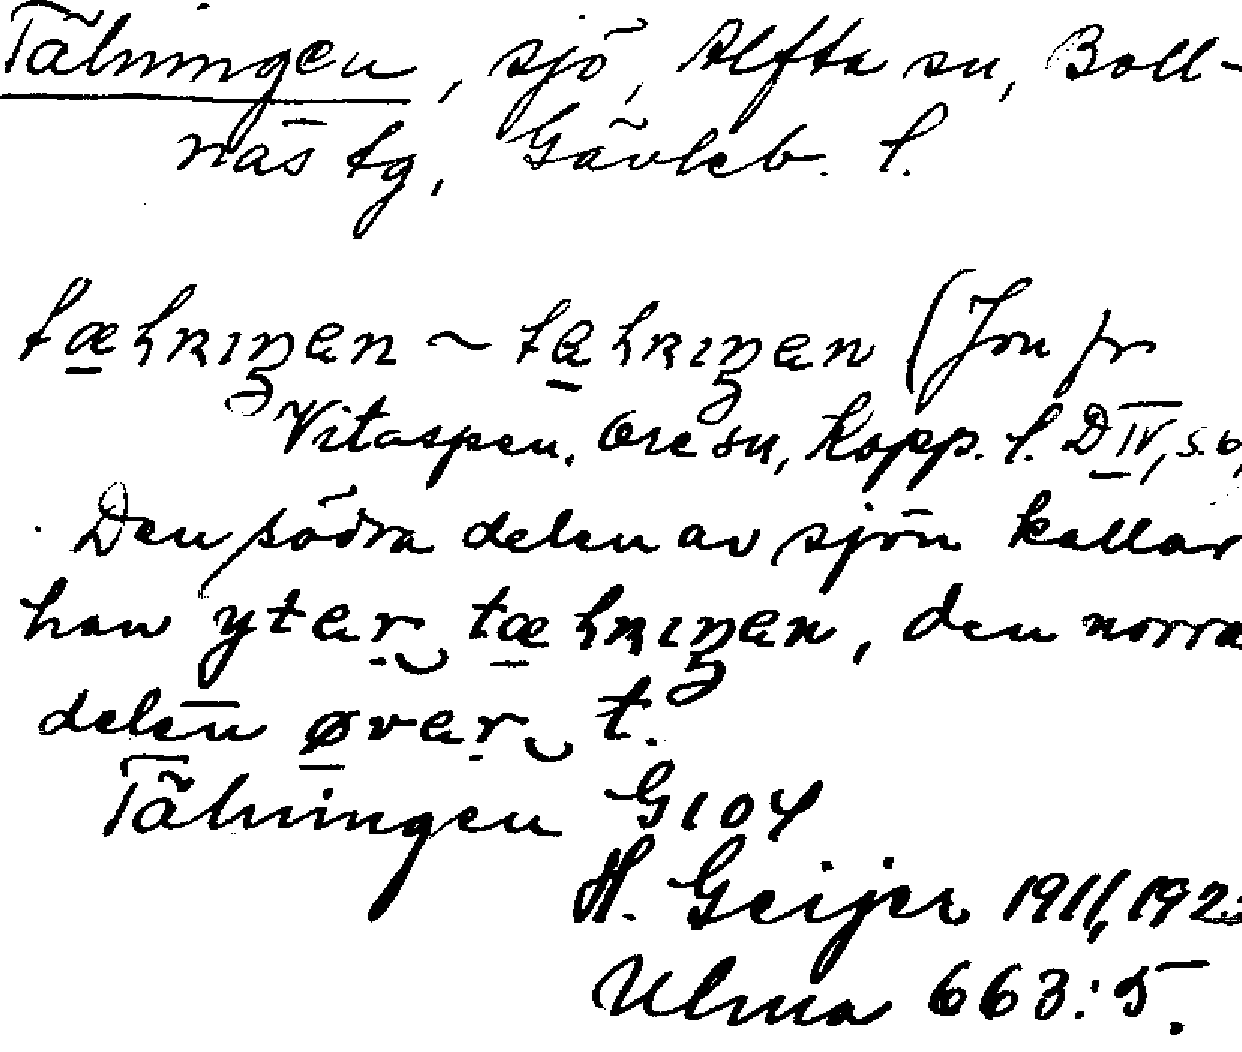 Tälningen, sjö, Alfta sn, Boll-
näs tg, Gävleb. l.
tæhnıŋen ~ tahnıŋen (Jon fr
Vitaspen, Ore sn, Kopp. l. D IV, s. 6,
Den södra delen av sjön kallar
han yter tæhnıŋen, den norra
delen øver t.
Tälningen G 104
H. Geijer 1911, 192
Ulma 663:5.